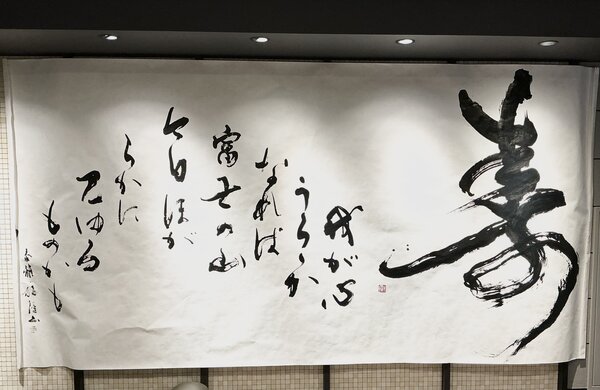 寿
我が心
うららか
なれば
富士の山
今日ほが
らかに
見ゆる
ものかも